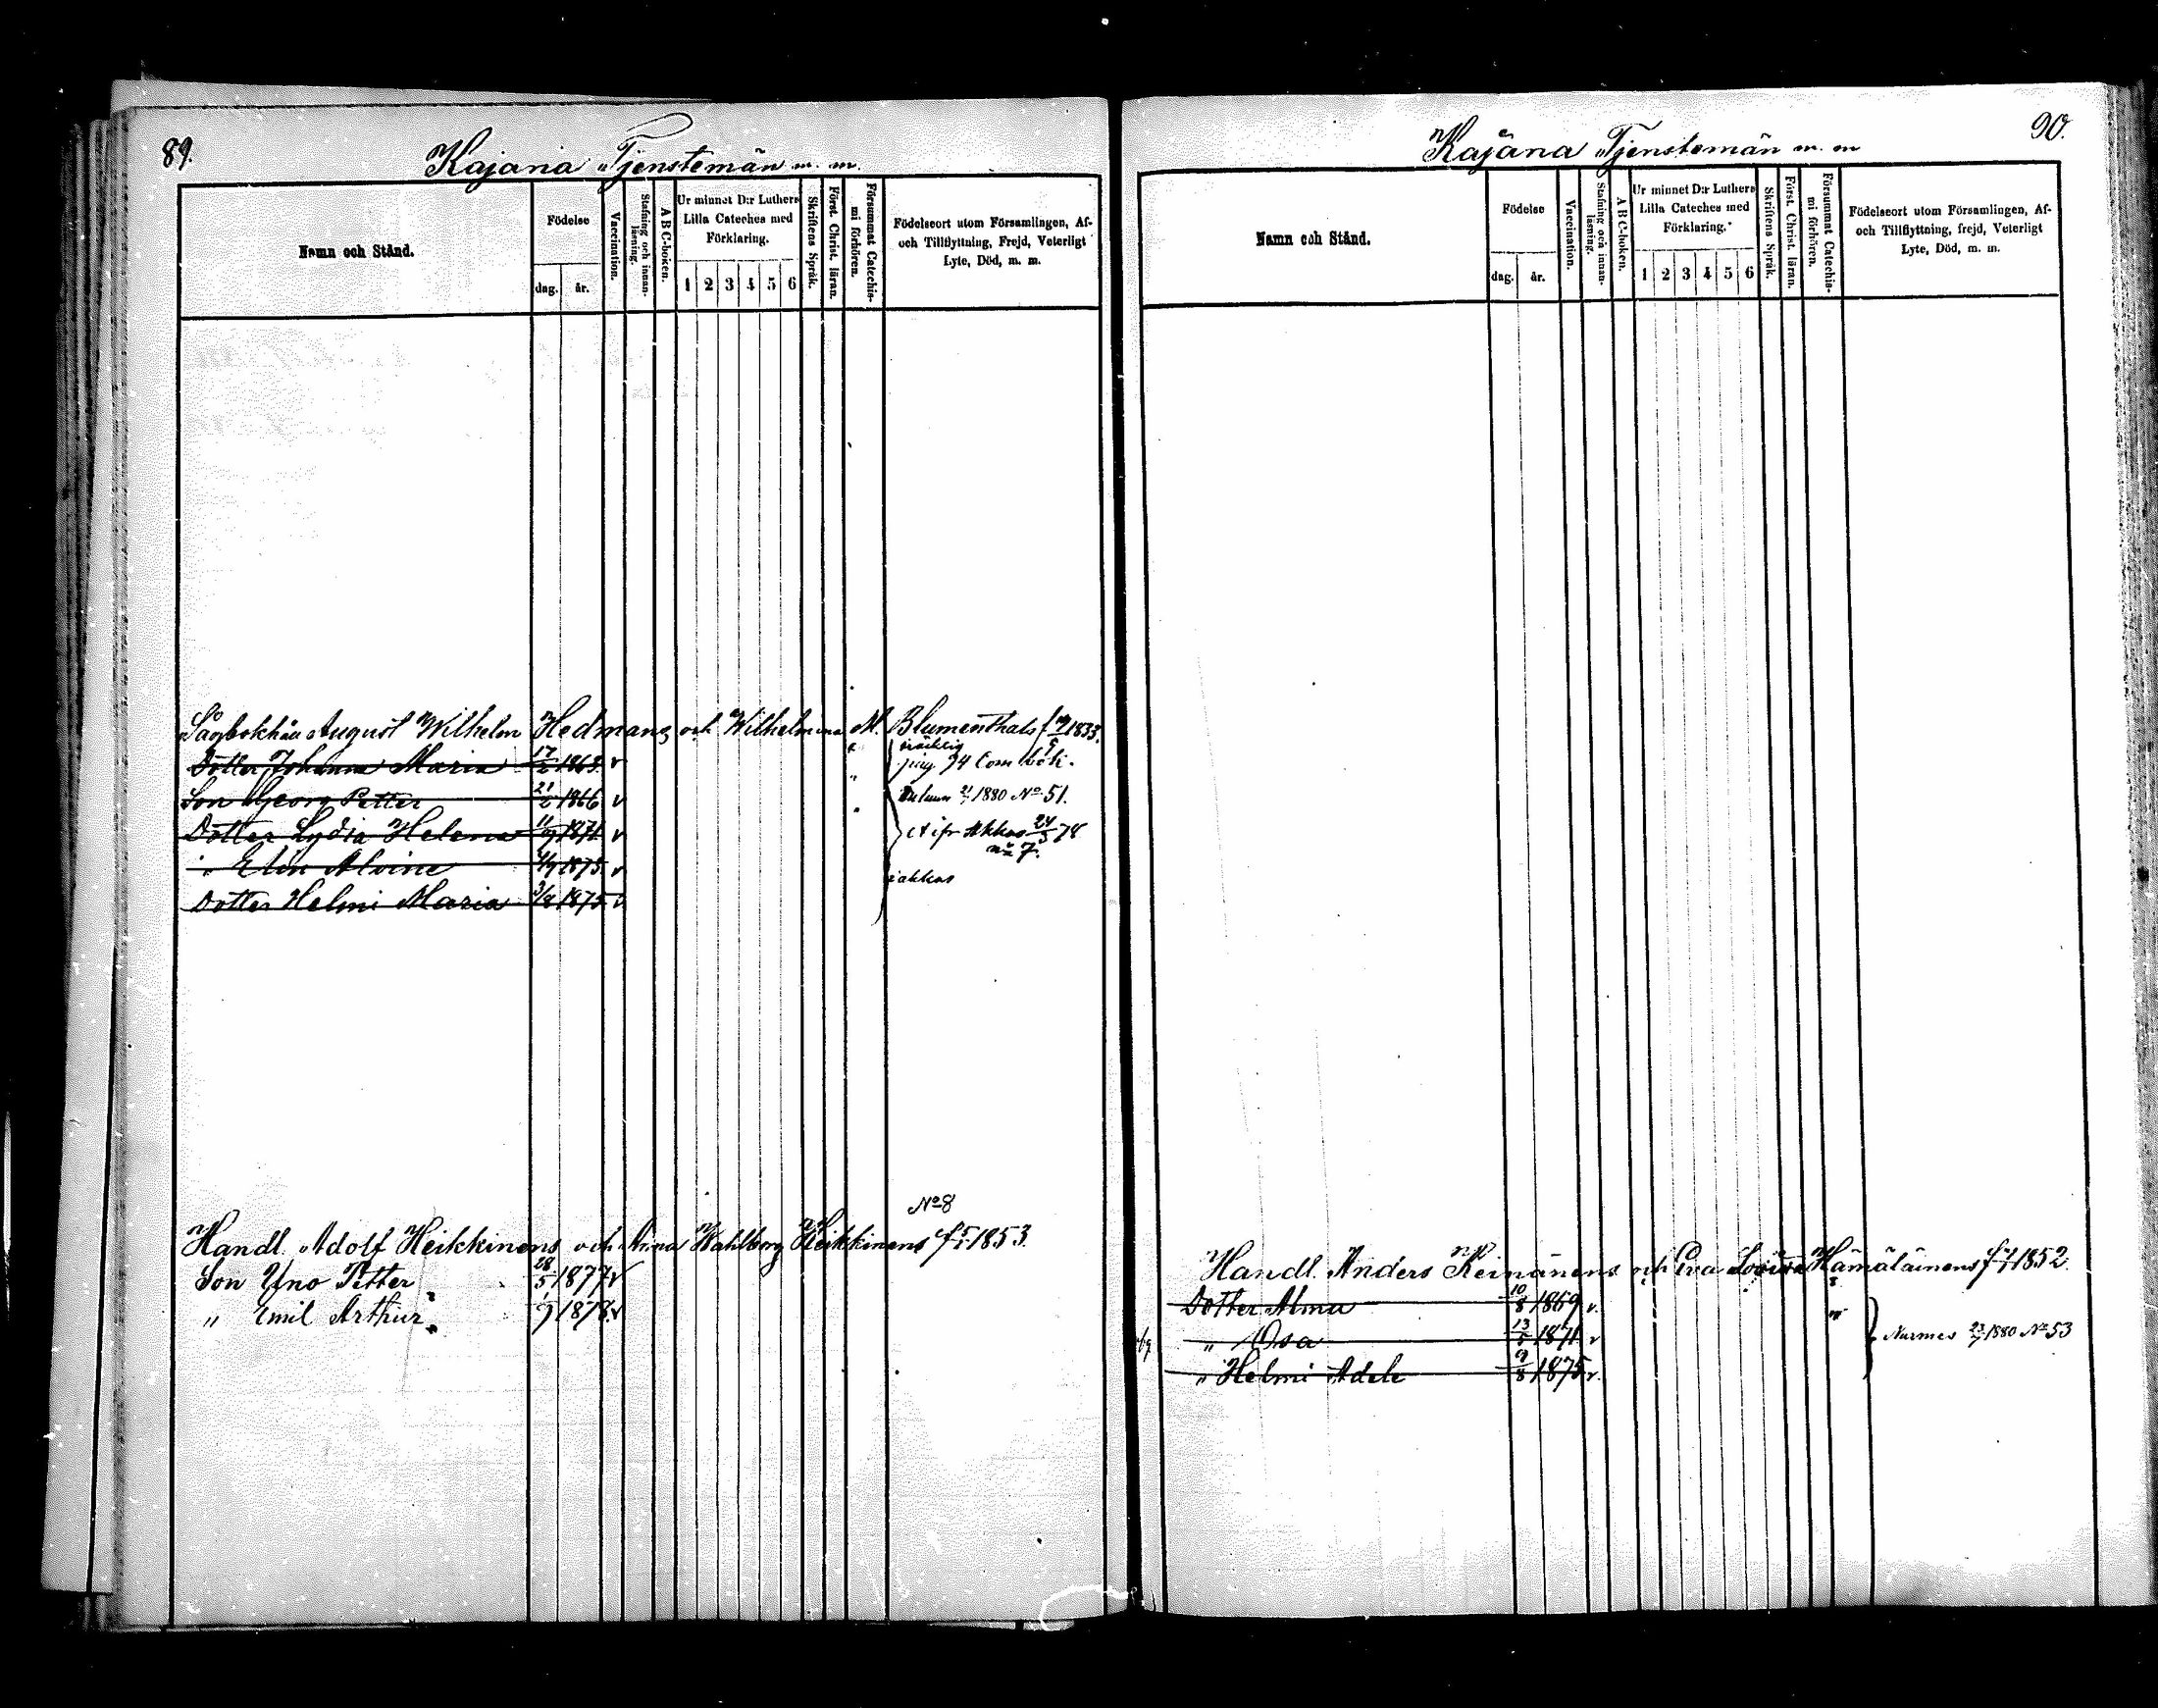 89.
Kajana Tjenstemän m. m.
Namn och Stånd.
Födelse
dag. år.
Vaccination.
Stafning och innanläsning.
A B C-boken.
Ur minnet D:r Luthers
Lilla Cateches med
Förklaring.
1 2 3 4 5 6
Skriftens Språk.
Först. Christ. läran.
Försummat Catechismi förhören.
Födelseort utom Församlingen, Af-
och Tillflyttning, Frejd, Veterligt
Lyte, Död, m. m.
Sågbokhåll August Wilhelm Hedmans och Wilhelmina M. Blumenthals f 1833.
Dotter Johanna Maria 17/2 1863 v pag 94 Com bok.
Son Georg Petter 21/2 1866 v 1880 No 51.
Dotter Lydia Helena 11/9 1871 v
No 7.
" Elin Alvine 1873 v
Dotter Helmi Maria 3/8 1875 v
No 8
Handl. Adolf Heikkinens och Anna Wahlberg Heikkinens f 1853.
Son Uno Petter 28/5 1877 v
" Emil Arthur 1/9 1878 v
90.
Kajana Tjenstemän m. m
Namn och Stånd.
Födelse
dag. år.
Vaccination.
Stafning och innanläsning.
A B C-boken.
Ur minnet D:r Luthers
Lilla Cateches med
Förklaring.
1 2 3 4 5 6
Skriftens Språk.
Först. Christ. läran.
Försummat Catechismi förhören.
Födelseort utom Församlingen, Af-
och Tillflyttning, frejd, Veterligt
Lyte, Död, m. m.
Handl. Anders Keinänens och Eva Lovisa Hämäläinens f 1852.
Dotter Alma 10/8 1869 v.
" Osa 13/5 1871 v Nurmes 23/7 1880 No 53
" Helmi Adele 9/8 1875 v.